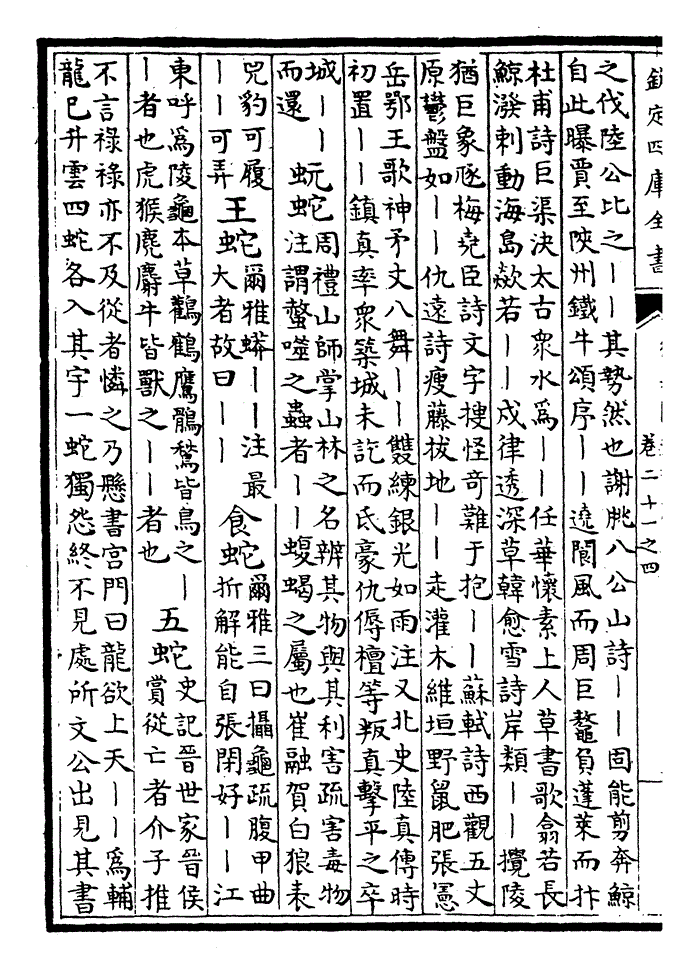 欽定四庫全書
卷二十一之四
之伐陸公比之丨丨其勢然也謝朓八公山詩丨丨固能剪奔鯨
自此曝賈至陝州鐵牛頌序丨丨遶閬風而周巨鼇負蓬萊而抃
杜甫詩巨渠決太古衆水為丨丨任華懷素上人草書歌翕若長
鯨潑剌動海島欻若丨丨戍律透深草韓愈雪詩岸類丨丨攪陵
猶巨象豗梅堯臣詩文字搜怪奇難于抱丨丨蘇軾詩西觀五丈
原鬱盤如丨丨仇遠詩瘦藤拔地丨丨走灌木維垣野鼠肥張憲
岳鄂王歌神矛丈八舞丨丨雙練銀光如雨注又北史陸真傳時
初置丨丨鎮真率衆築城未訖而氐豪仇傉檀等叛真擊平之卒
城丨丨
而還
蚖蛇
周禮山師掌山林之名辨其物與其利害疏害毒物
注謂螫噬之蟲者丨丨蝮蝎之屬也崔融賀白狼表
兕豹可履
丨丨可弄
王蛇
爾雅蟒丨丨注最
蛇大者故曰丨丨
食蛇
爾雅三曰攝龜疏腹甲曲
折解能自張閉好丨丨江
東呼為陵龜本草鸛鶴鷹鶻鶖皆鳥之丨
丨者也虎猴麂麝牛皆獸之丨丨者也
五蛇
史記晉世家晉侯
賞從亡者介子推
不言祿祿亦不及從者憐之乃懸書宮門曰龍欲上天丨丨為輔
龍已升雲四蛇各入其宇一蛇獨怨終不見處所文公出見其書